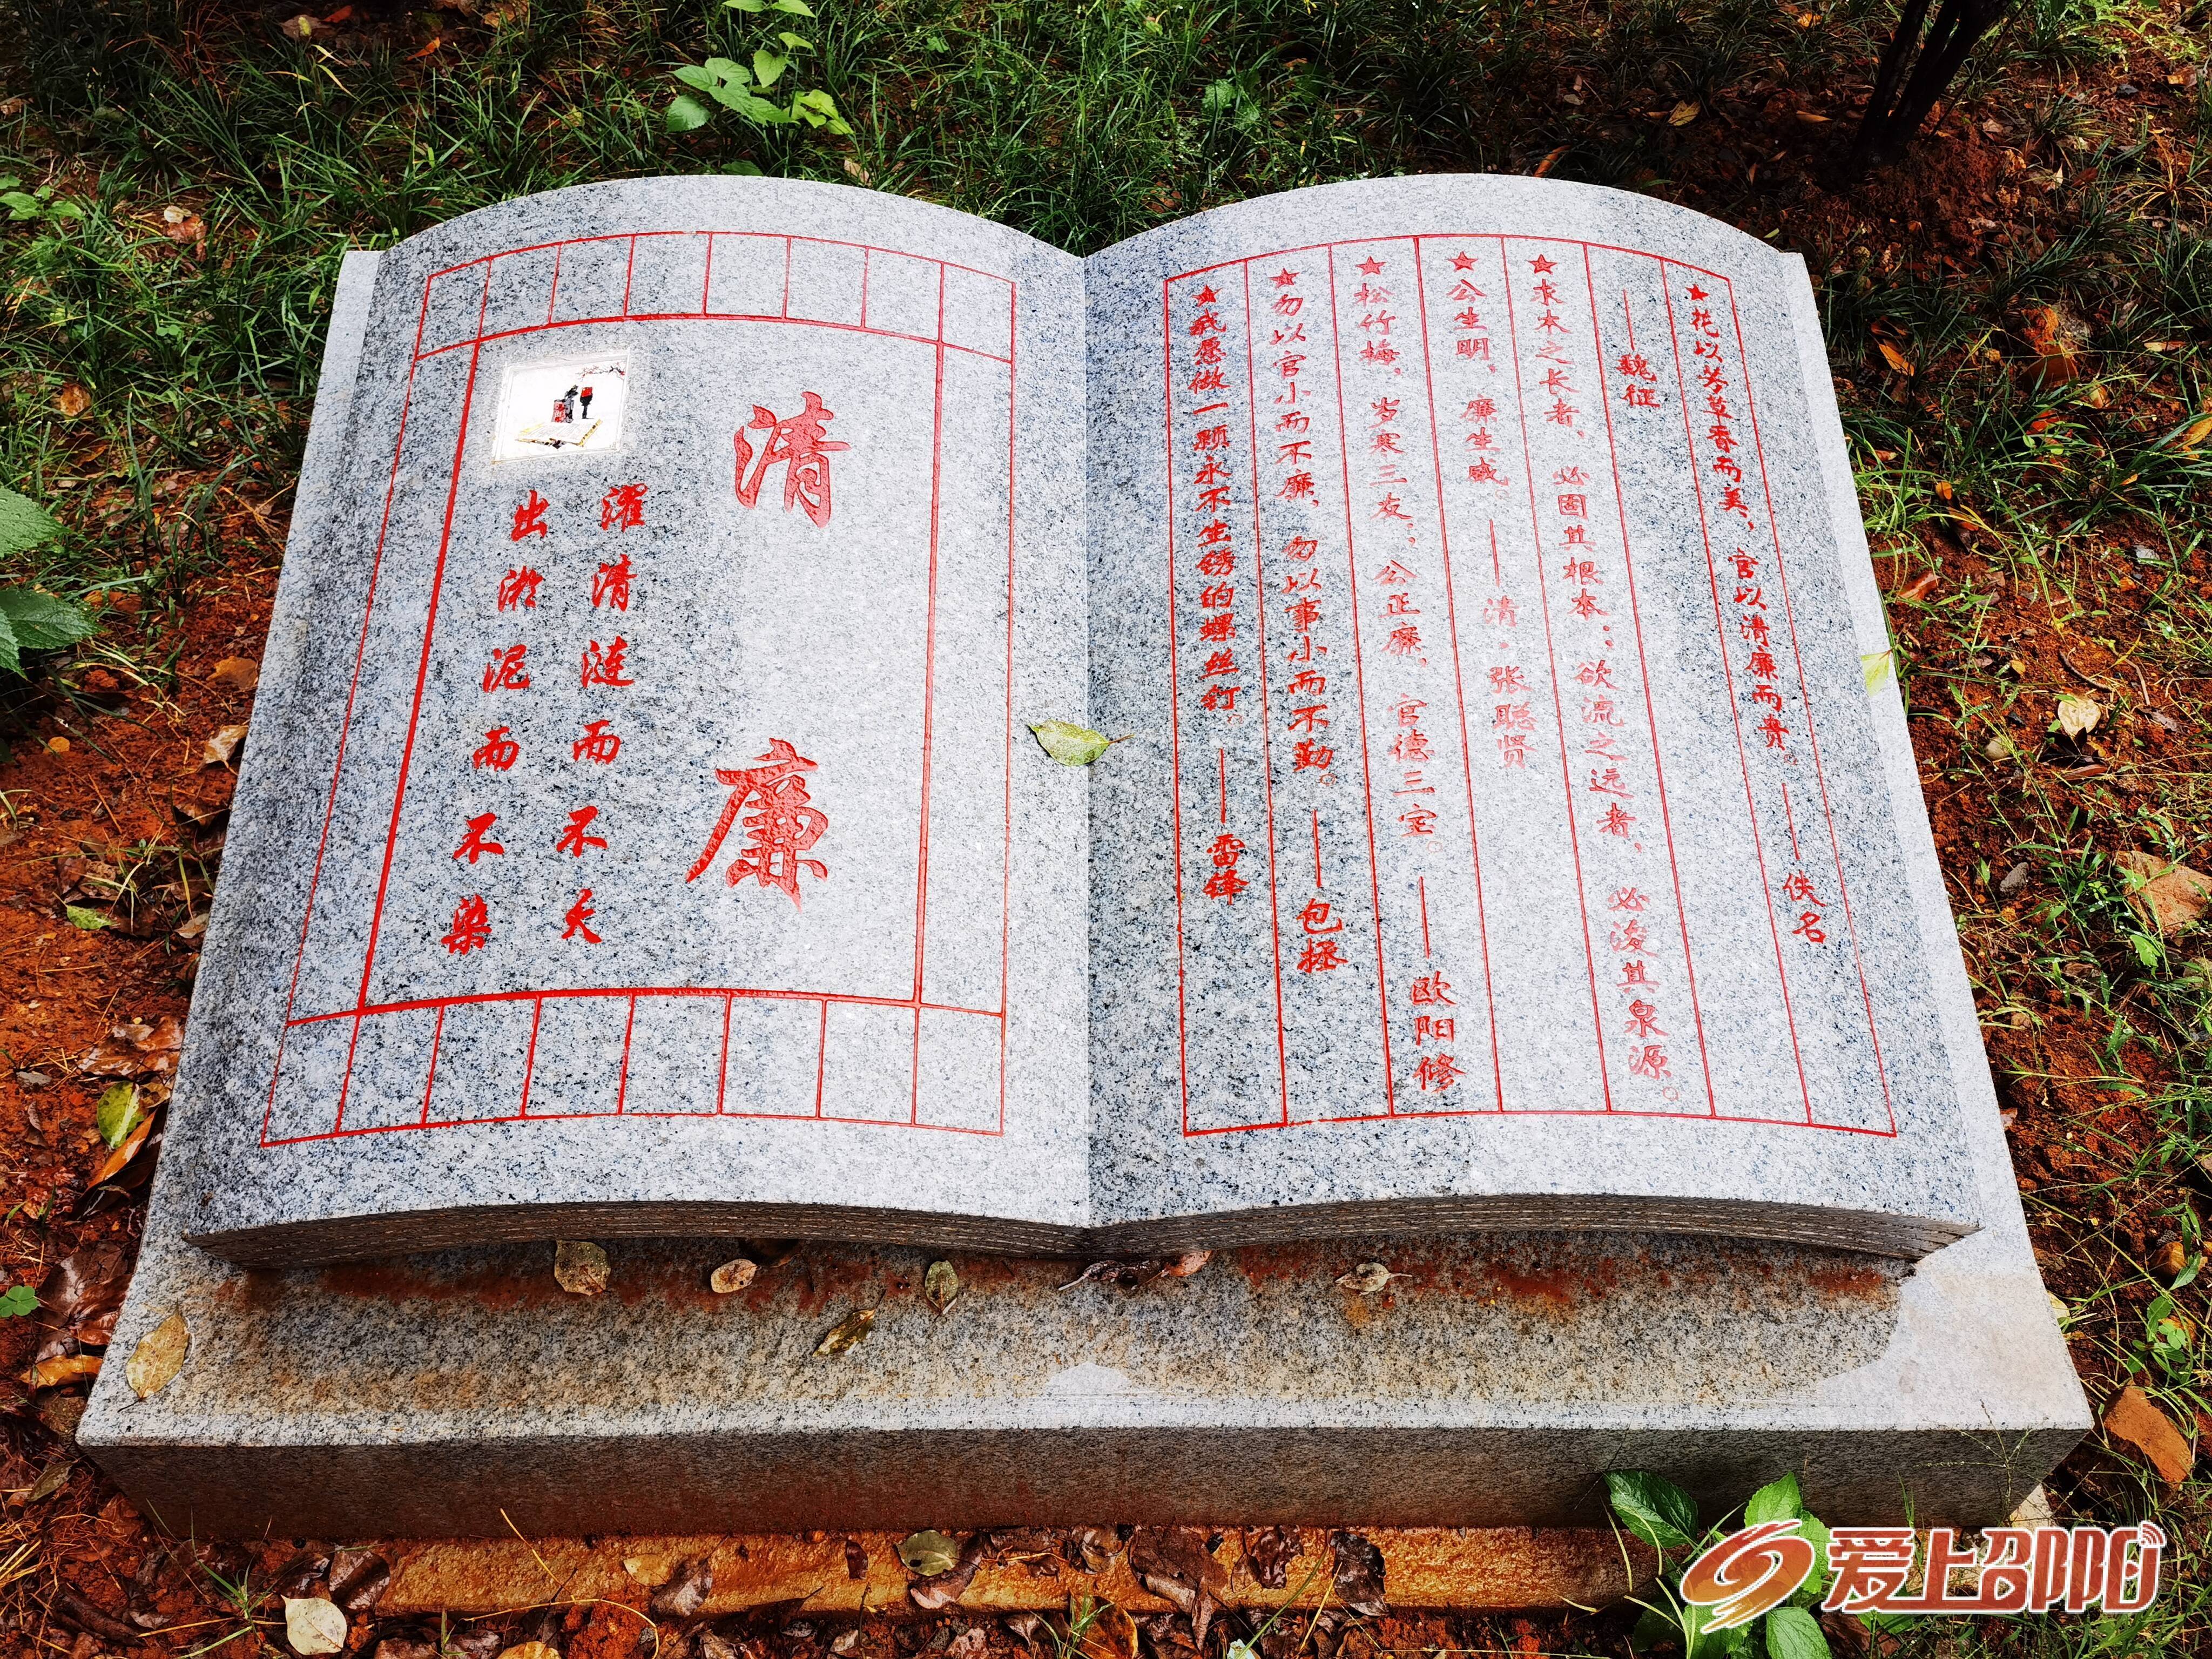 清廉
出淤泥而不染
濯清涟而不夭
★我愿做一颗永不生锈的螺丝钉。——雷锋
★勿以官小而不廉，勿以事小而不勤。——包拯
★松竹梅，岁寒三友；公正廉，官德三宝。——欧阳修
★公生明，廉生威。——清·张聪贤
★求本之长者，必固其根本；欲流之远者，必浚其泉源。
——魏征
★花以香而美，官以清廉而贵。——佚名
爱上邵阳